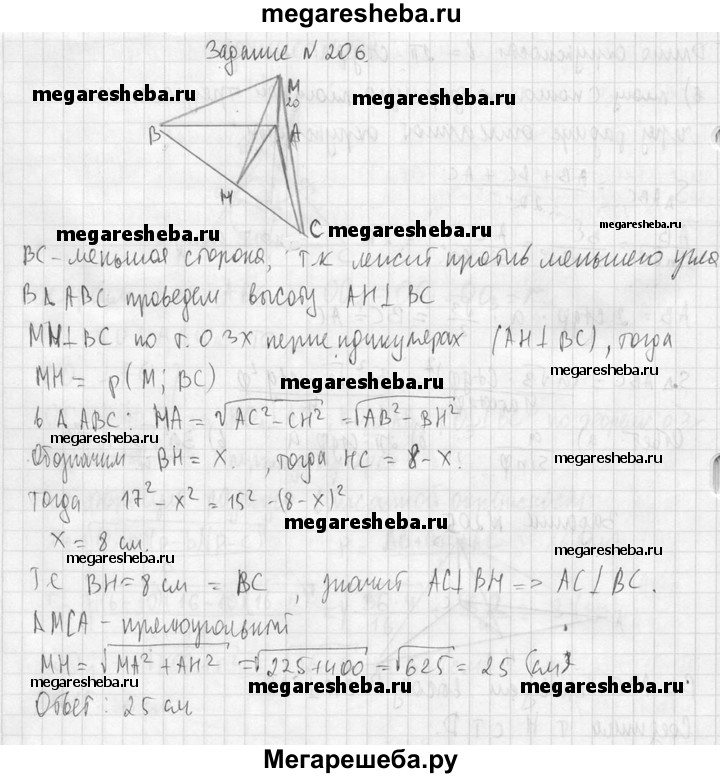 megaresheba.ru
Задание N 206
megaresheba.ru
megaresheba.ru
M
20
B
A
H
C
megaresheba.ru
megaresheba.ru
megaresheba.ru
BC - меньшая сторона, т.к лежит против меньшего угла
В Δ ABC проведем высоту AH⊥BC
megaresheba.ru
megaresheba.ru
MH⊥BC по т. о 3х перпендикулярах (AH⊥BC), тогда
MH = p(M; BC)
megaresheba.ru
в Δ ABC: MA = √AC² - CH² = √AB² - BH²
megaresheba.ru
Обозначим BH = x. , тогда HC = 8 - x.
megaresheba.ru
Тогда 17² - x² = 15² - (8 - x)²
megaresheba.ru
x = 8 см.
megaresheba.ru
megaresheba.ru
Т.С BH = 8 см = BC , значит AC⊥BH => AC⊥BC.
Δ MCA - прямоугольный
megaresheba.ru
megaresheba.ru
MH = √MA² + AH² = √225+400 = √625 = 25 (см)
megaresheba.ru
megaresheba.ru
Ответ: 25 см
megaresheba.ru
Мегарешеба.ру